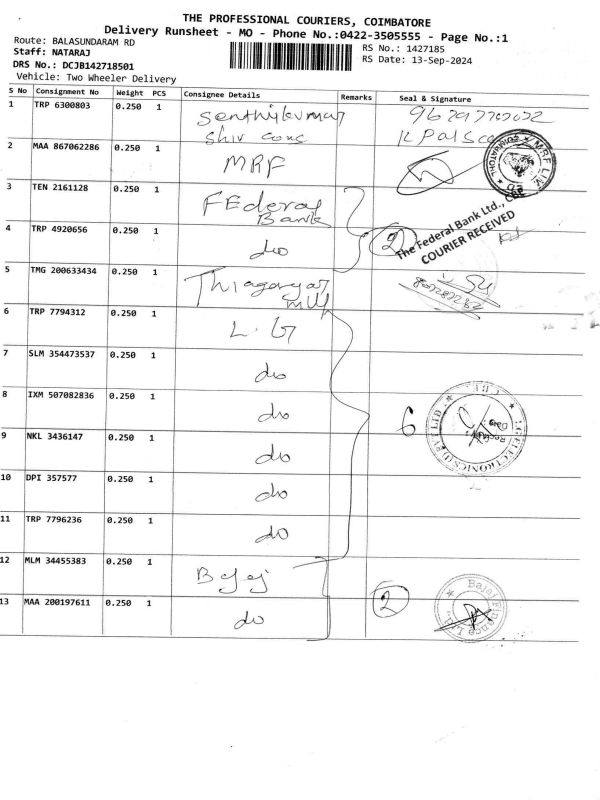 THE PROFESSIONAL COURIERS, COIMBATORE
Delivery Runsheet - MO - Phone No.:0422-3505555 - Page No.:1
Route: BALASUNDARAM RD
RS No.: 1427185
Staff: NATARAJ
RS Date: 13-Sep-2024
DRS No.: DCJB142718501
Vehicle: Two Wheeler Delivery
S No Consignment No Weight PCS Consignee Details Remarks Seal & Signature
1 TRP 6300803 0.250 1 Senthilkumar
Shiv
2 MAA 867062286 0.250 1 MRF
M.R.F LTD
3 TEN 2161128 0.250 1 FEderal
Bank
4 TRP 4920656 0.250 1 do 2
The Federal Bank Ltd.,
COURIER RECEIVED
5 TMG 200633434 0.250 1 Thiagarajar
mill
6 TRP 7794312 0.250 1 L.G
7 SLM 354473537 0.250 1 do
8 IXM 507082836 0.250 1 do 6
9 NKL 3436147 0.250 1 do
10 DPI 357577 0.250 1 do
11 TRP 7796236 0.250 1 do
12 MLM 34455383 0.250 1 Bajaj
13 MAA 200197611 0.250 1 do 2
Bajaj Finance Ltd